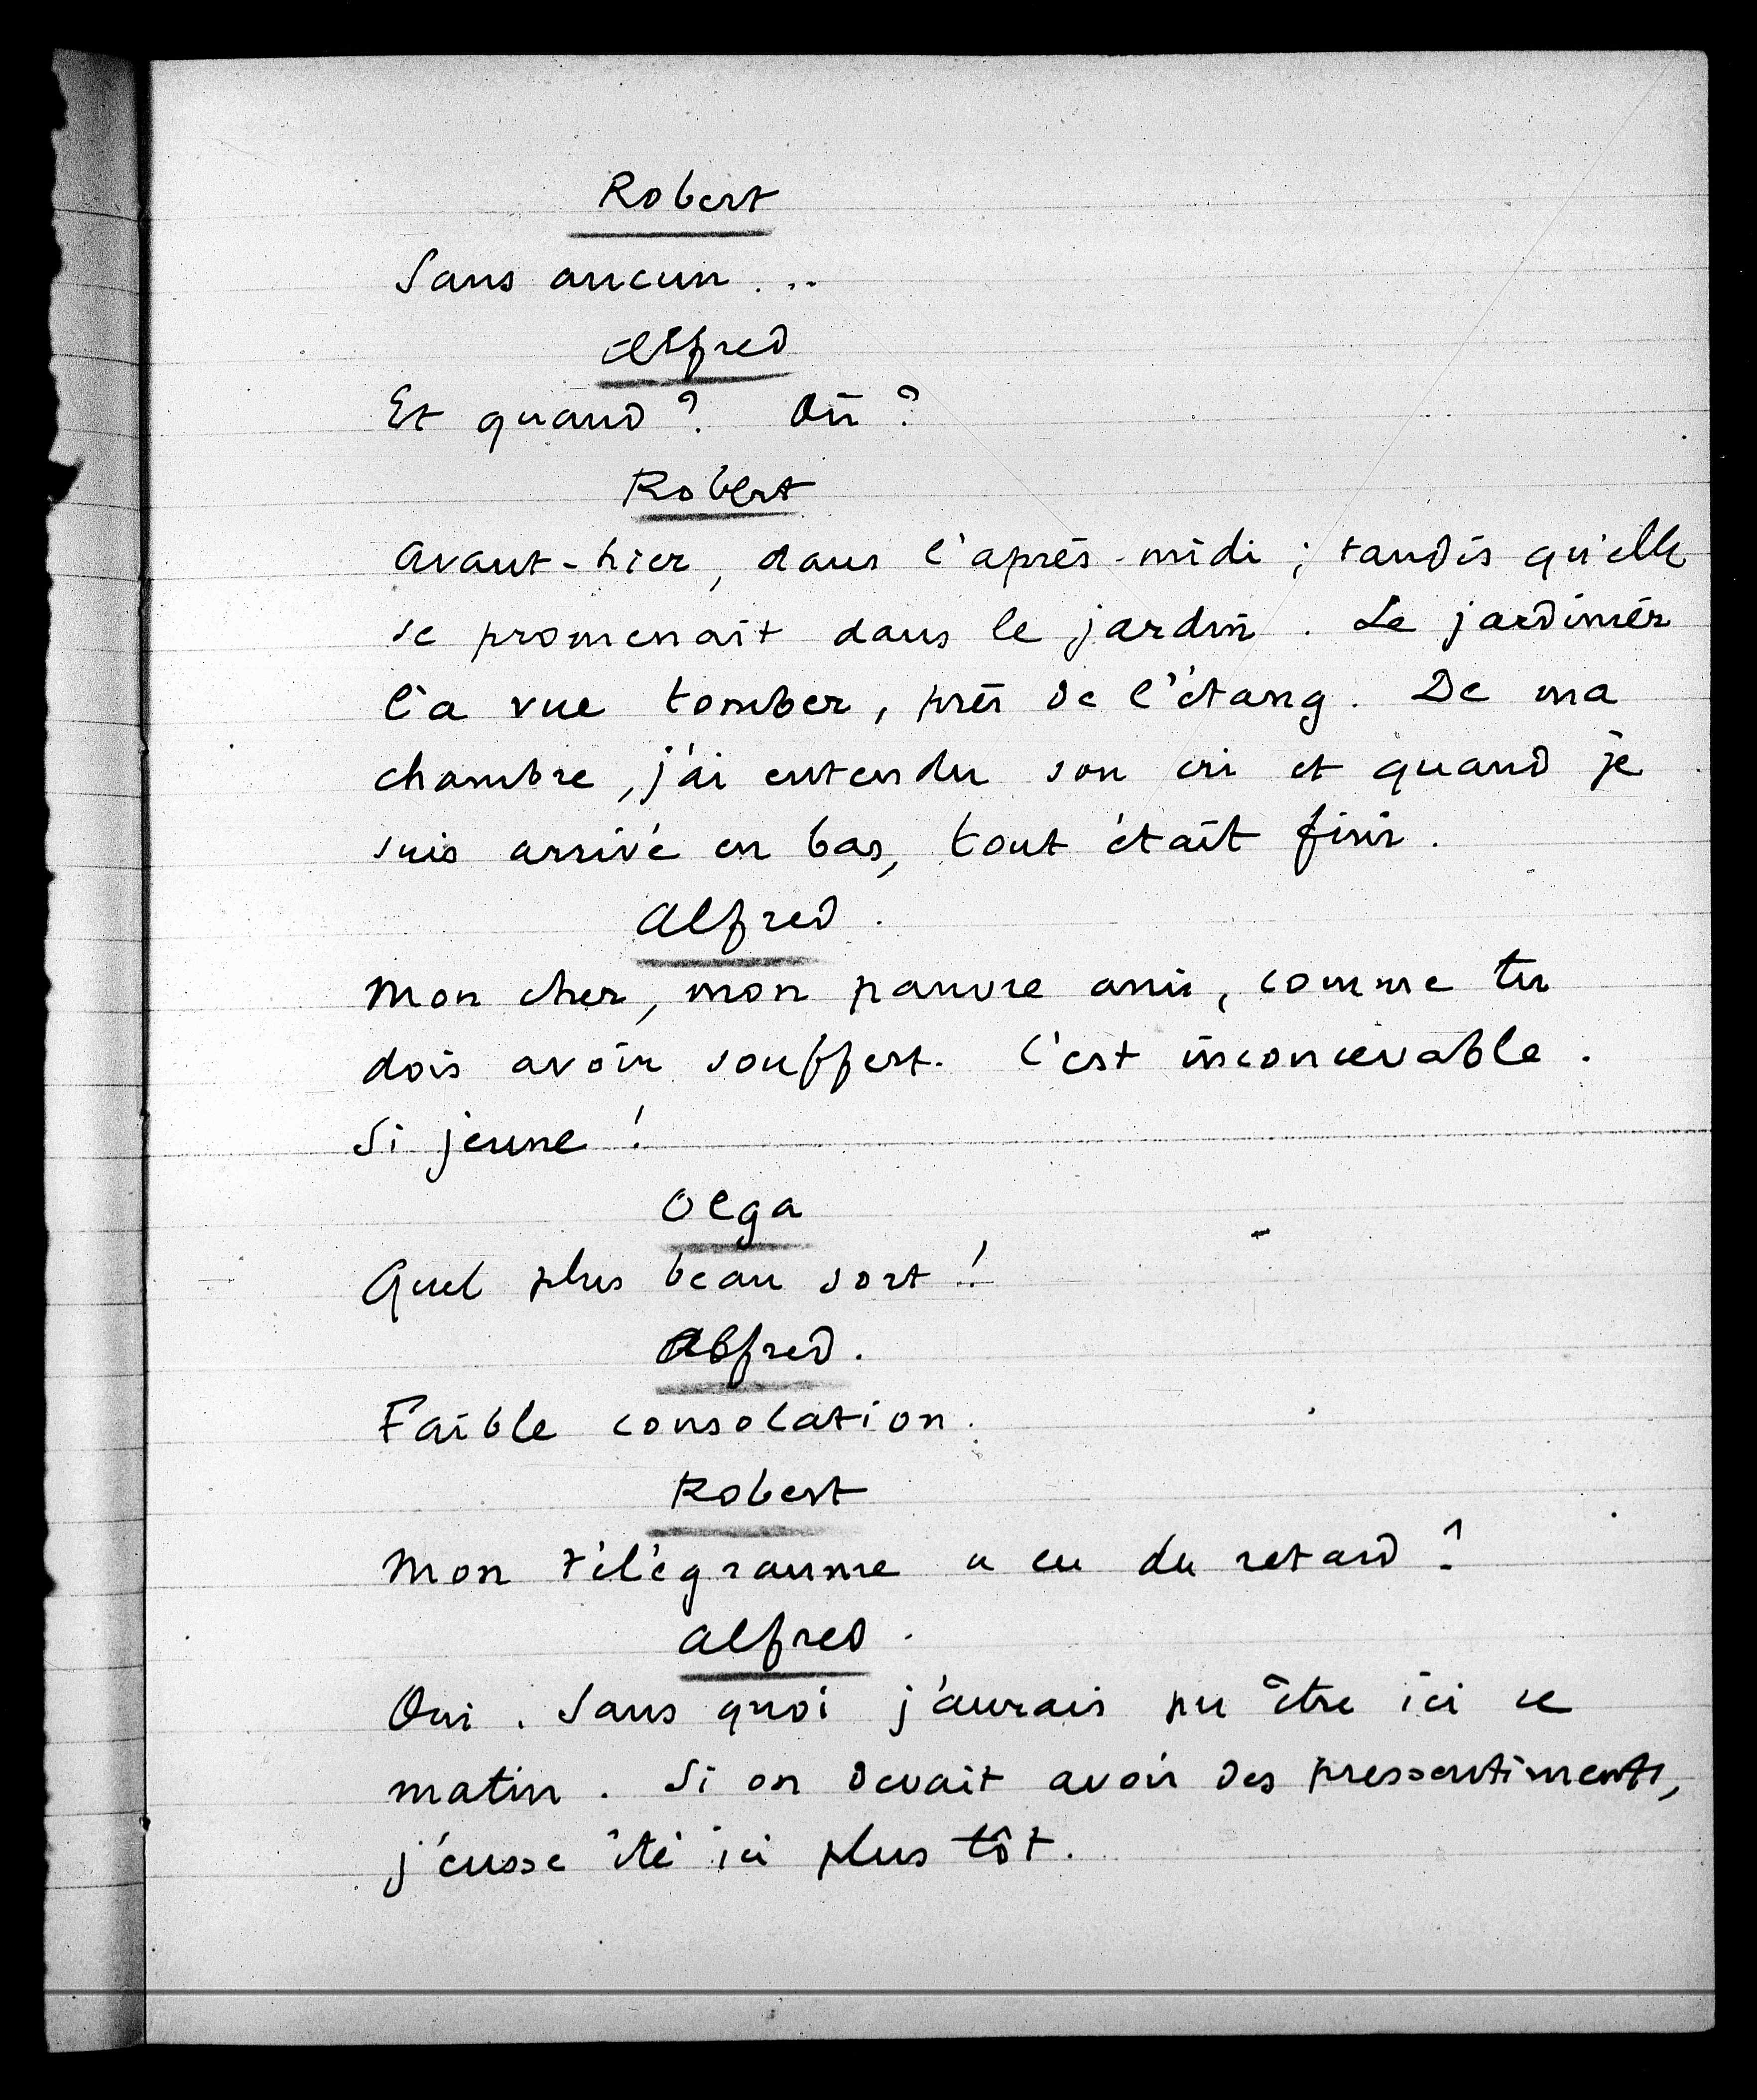 Robert
Sans aucun...
Alfred
Et quand ? Où ?
Robert
Avant-hier, dans l'après-midi ; tandis qu'elle
se promenait dans le jardin. Le jardinier
l'a vue tomber, près de l'étang. De ma
chambre, j'ai entendu son cri et quand je
suis arrivé en bas, tout était fini.
Alfred.
Mon cher, mon pauvre ami, comme tu
dois avoir souffert. C'est inconcevable.
Si jeune !
Olga
Quel plus beau sort !
Alfred.
Faible consolation.
Robert
Mon télégramme a eu du retard ?
Alfred.
Oui. Sans quoi j'aurais pu être ici ce
matin. Si on devait avoir des pressentiments,
j'eusse été ici plus tôt.